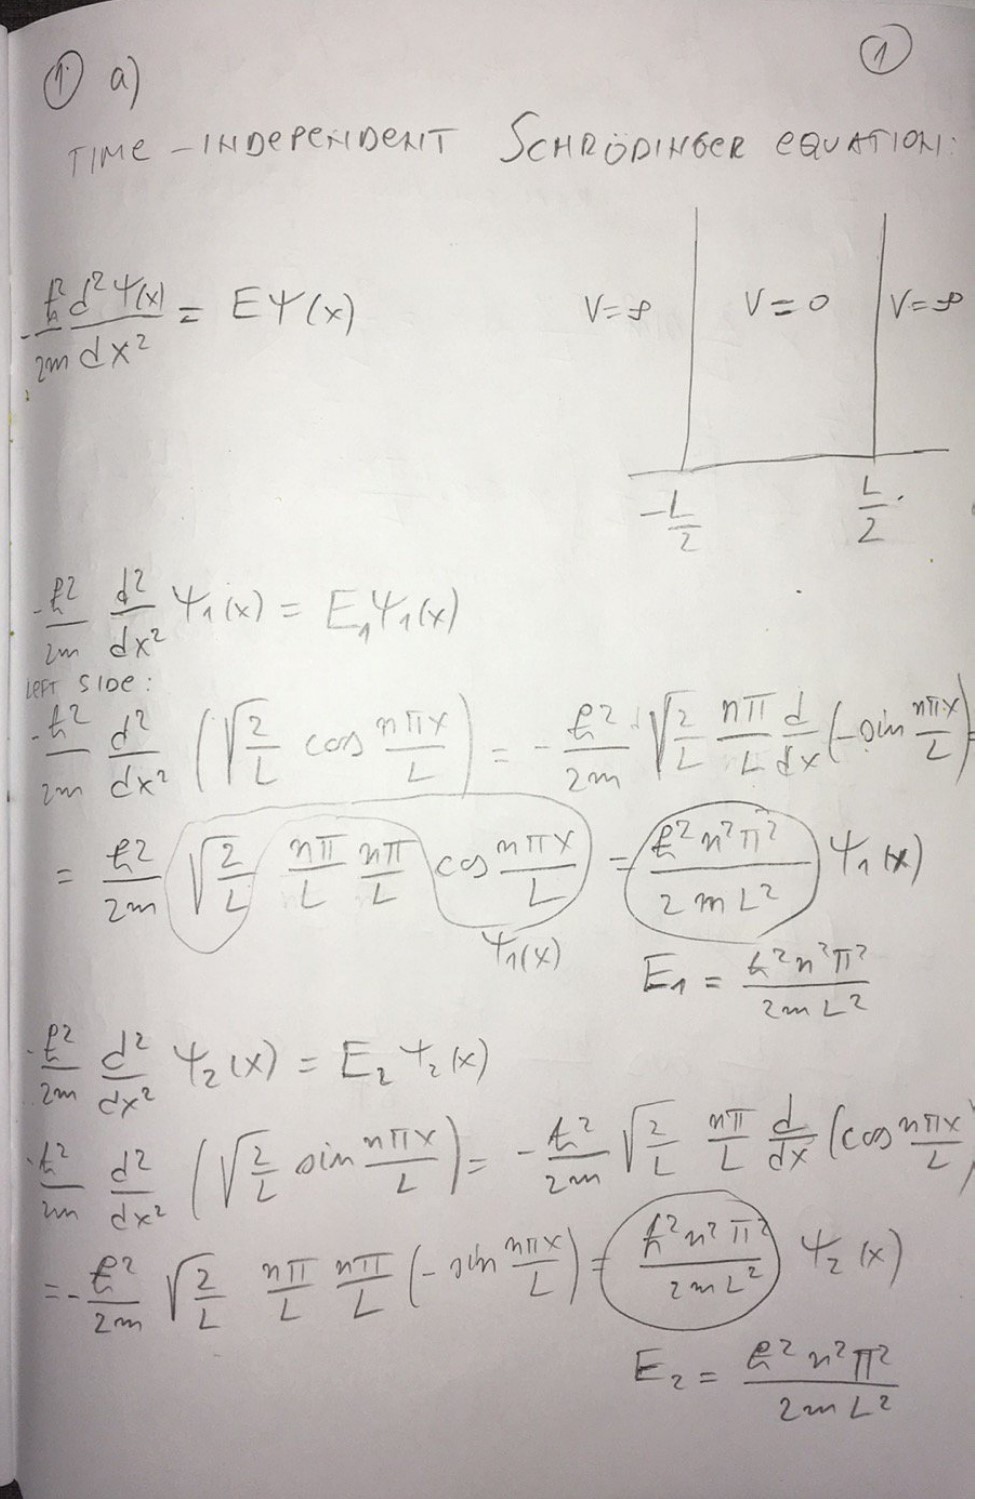 ① a)
①
TIME-INDEPENDENT SCHRÖDINGER EQUATION:
-ħ²/2m d²Ψ(x)/dx² = EΨ(x)
V=∞ V=0 V=∞
-L/2 L/2
-ħ²/2m d²/dx² Ψ₁(x) = E₁Ψ₁(x)
LEFT SIDE:
-ħ²/2m d²/dx² (√(2/L) cos nπx/L) = -ħ²/2m √(2/L) nπ/L d/dx (-sin nπx/L) =
= ħ²/2m √(2/L) nπ/L nπ/L cos nπx/L = ħ²n²π²/2mL² Ψ₁(x)
Ψ₁(x)
E₁ = ħ²n²π²/2mL²
-ħ²/2m d²/dx² Ψ₂(x) = E₂Ψ₂(x)
-ħ²/2m d²/dx² (√(2/L) sin nπx/L) = -ħ²/2m √(2/L) nπ/L d/dx (cos nπx/L)
= -ħ²/2m √(2/L) nπ/L nπ/L (-sin nπx/L) = ħ²n²π²/2mL² Ψ₂(x)
E₂ = ħ²n²π²/2mL²